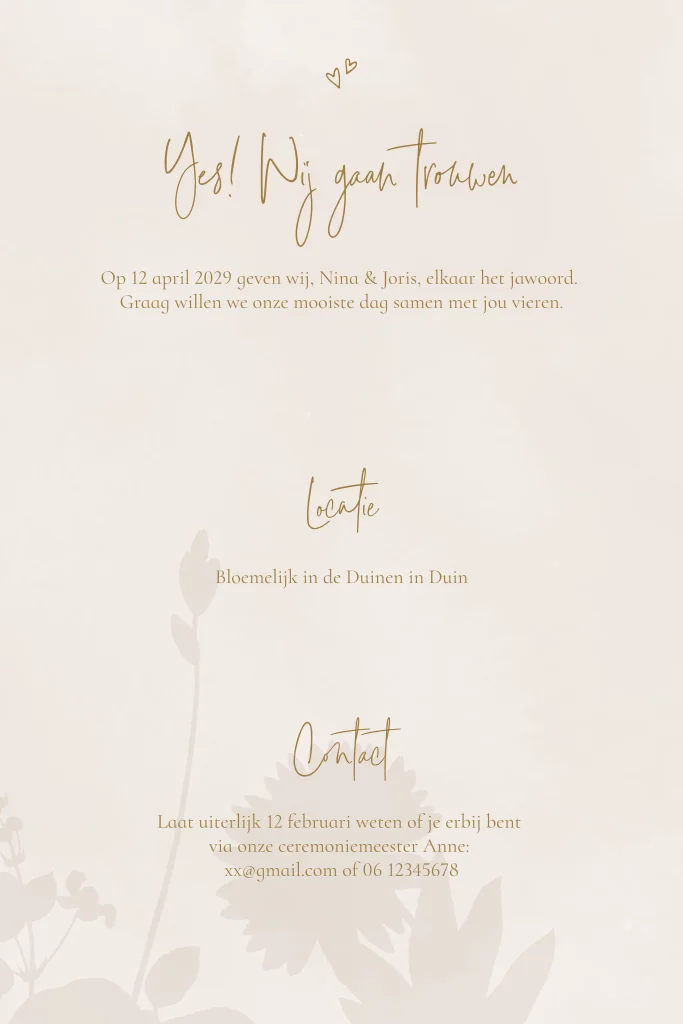 Yes! Wij gaan trouwen
Op 12 april 2029 geven wij, Nina & Joris, elkaar het jawoord.
Graag willen we onze mooiste dag samen met jou vieren.
Locatie
Bloemelijk in de Duinen in Duin
Contact
Laat uiterlijk 12 februari weten of je erbij bent
via onze ceremoniemeester Anne:
xx@gmail.com of 06 12345678